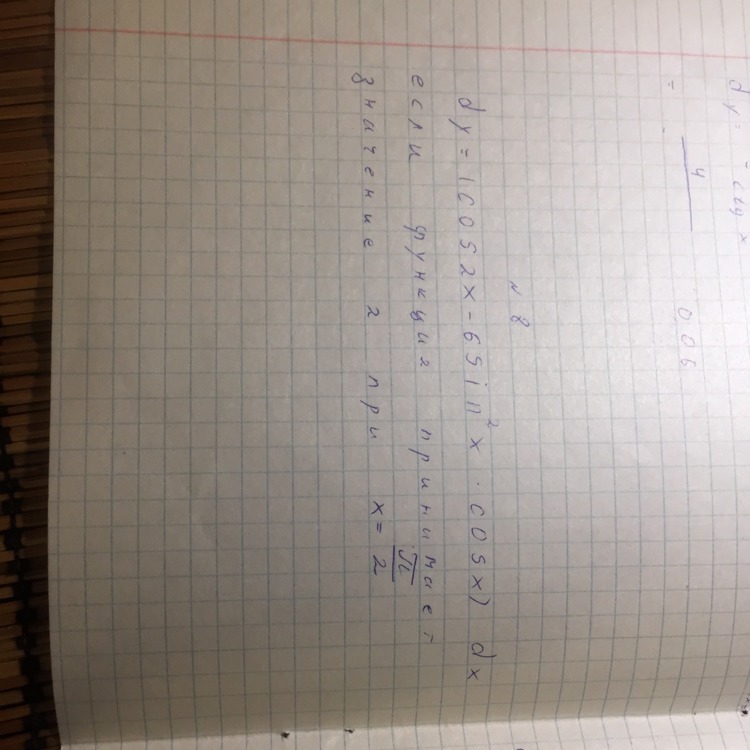 dy = - ctg x
= 4 0,06
№ 8
dy = (cos 2x - 6 sin² x · cos x) dx
если функция принимает
значение 2 при x = π/2